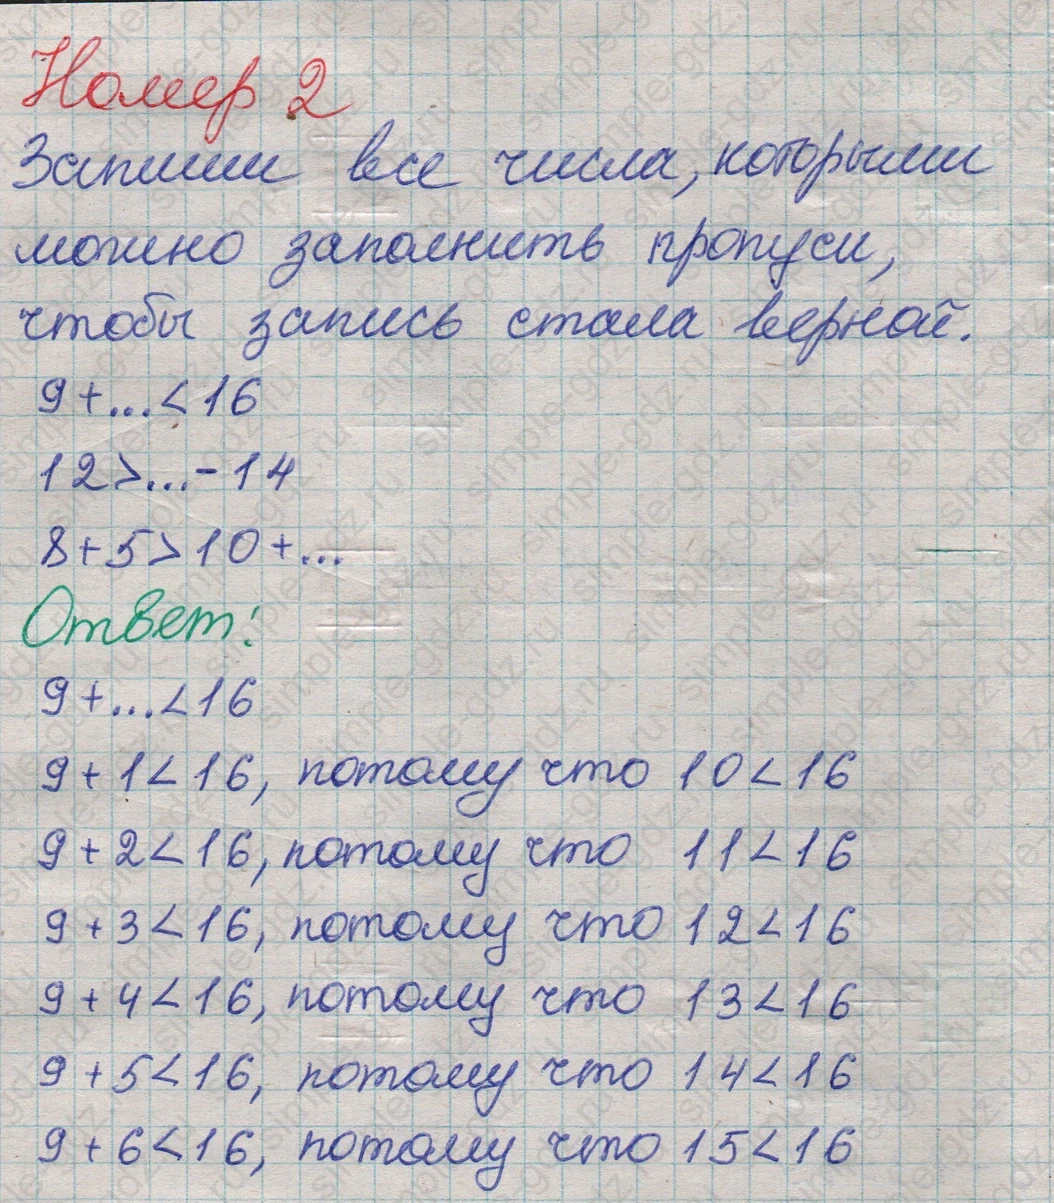 Номер 2
Запиши все числа, которыми
можно заполнить пропуси,
чтобы запись стала верной.
9+...<16
12>...-14
8+5>10+...
Ответ:
9+...<16
9+1<16, потому что 10<16
9+2<16, потому что 11<16
9+3<16, потому что 12<16
9+4<16, потому что 13<16
9+5<16, потому что 14<16
9+6<16, потому что 15<16
simple-gdz.ru